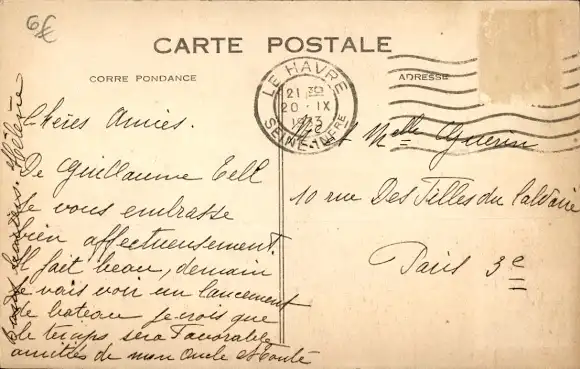 6€
CARTE POSTALE
CORRE PONDANCE
ADRESSE
LE HAVRE
21 30
20 - IX
1933
SEINE-INFRE
Chères Amies.
De Guillaume Tell
je vous embrasse
bien affectueusement
Il fait beau, demain
je vais voir un lancement
de bateau je crois que
le temps sera favorable
amitiés de mon Oncle et
Hélène
Melle Guérin
10 rue Des Filles du Calvaire
Paris 3e